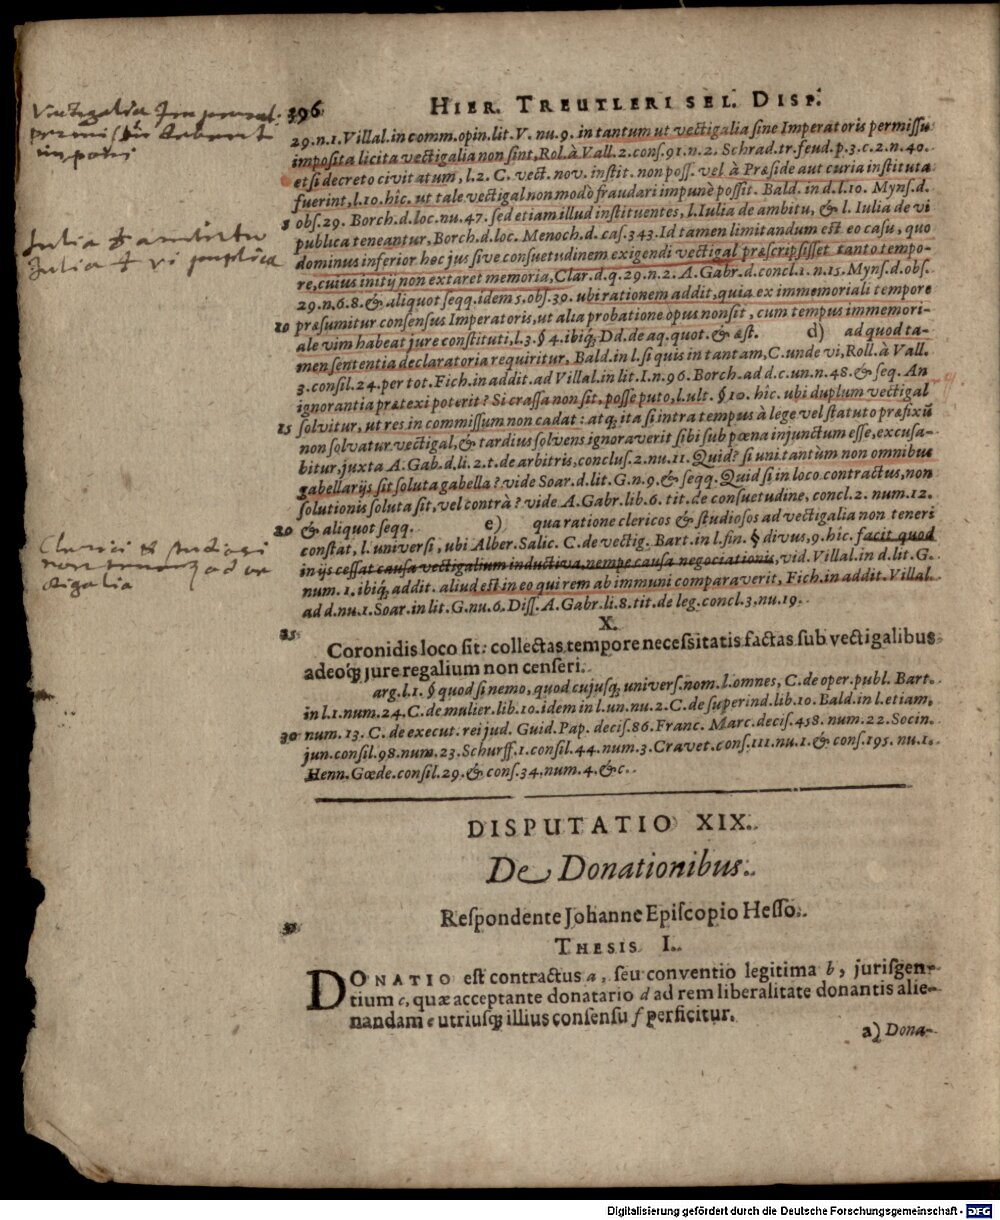 396 HIER. TREUTLERI SEL. DISP.
Vectigalia Imperat.
permissu debent
imponi
29.n.1.Villal.in comm.opin.lit.V. nu.9. in tantum ut vectigalia sine Imperatoris permissu
imposita licita vectigalia non sint, Rol.à Vall.2.cons.91.n.2. Schrad.tr.feud.p.3.c.2.n.40.
etsi decreto civitatum, l.2. C. vect. nov. instit. non poss. vel à Præside aut curia instituta
fuerint, l.10. hîc. ut tale vectigal non modò fraudari impunè possit. Bald. in d.l.10. Myns.d.
5 obs.29. Borch.d.loc.nu.47. sed etiam illud instituentes, l.Iulia de ambitu, & l. Iulia de vi
publica teneantur, Borch.d.loc. Menoch.d. cas.343. Id tamen limitandum est eo casu, quo
Julia d ambitu
Julia d vi publica
dominus inferior hoc jus sive consuetudinem exigendi vectigal præscripsisset tanto tempo-
re, cuius initij non extaret memoria, Clar.d.q.29.n.2. A.Gabr.d.concl.1.n.15. Myns.d.obs.
29.n.6.8. & aliquot seqq. idem 5.obs.39. ubi rationem addit, quia ex immemoriali tempore
10 præsumitur consensus Imperatoris, ut alia probatione opus non sit, cum tempus immemori-
ale vim habeat jure constituti, l.3.§ 4. ibiq; Dd. de aq. quot. & æst. d) ad quod ta-
men sententia declaratoria requiritur, Bald.in l.si quis in tantam, C. unde vi, Roll.à Vall.
3.consil.24. per tot. Fich.in addit.ad Villal.in lit.I.n.96. Borch.ad d.c.un.n.48. & seq. An
ignorantia prætexi poterit? Si crassa non sit, posse puto, l.ult. § 10. hîc. ubi duplum vectigal
15 solvitur, ut res in commissum non cadat: atq; ita si intra tempus à lege vel statuto præfixũ
non solvatur vectigal, & tardius solvens ignoraverit sibi sub pœna injunctum esse, excusa-
bitur, juxta A. Gab.d.li.2.t.de arbitris, conclus.2.nu.11. Quid? si uni tantùm non omnibus
gabellarijs sit soluta gabella? vide Soar.d.lit.G.n.9. & seqq. Quid si in loco contractus, non
solutionis soluta sit, vel contrà? vide A.Gabr.lib.6. tit. de consuetudine, concl.2. num.12.
20 & aliquot seqq. e) qua ratione clericos & studiosos ad vectigalia non teneri
Clerici et studiosi
non tenentur ad ve
ctigalia
constat, l. universi, ubi Alber. Salic. C. de vectig. Bart. in l. fin. § divus, 9. hîc. facit quod
in ijs cessat causa vectigalium inductiva, nempe causa negociationis, vid. Villal. in d. lit. G.
num. 1. ibiq; addit. aliud est in eo qui rem ab immuni comparaverit, Fich. in addit. Villal.
ad d.nu.1. Soar. in lit. G.nu.6. Diss. A. Gabr.li.8.tit. de leg. concl.3. nu.19.
X.
25 Coronidis loco sit: collectas tempore necessitatis factas sub vectigalibus
adeoq; jure regalium non censeri.
arg.l.1. § quod si nemo, quod cujusq; univers. nom. l. omnes, C. de oper. publ. Bart.
in l.1. num.24. C. de mulier. lib.10. idem in l. un. nu.2. C. de superind. lib.10. Bald. in l. etiam,
30 num. 13. C. de execut. rei jud. Guid. Pap. decis.86. Franc. Marc. decis.458. num.22. Socin.
jun. consil.98. num.23. Schurff. 1. consil.44. num.3. Cravet. cons. 111. nu.1. & cons.195. nu.1.
Henn. Gœde. consil.29. & cons.34. num.4. &c.
DISPUTATIO XIX.
De Donationibus.
35 Respondente Johanne Episcopio Hesso.
THESIS I.
DONATIO est contractus a, seu conventio legitima b, jurisgen-
tium c, quæ acceptante donatario d ad rem liberalitate donantis alie-
nandam e utriusq; illius consensu f perficitur.
a) Dona-
Digitalisierung gefördert durch die Deutsche Forschungsgemeinschaft - DFG